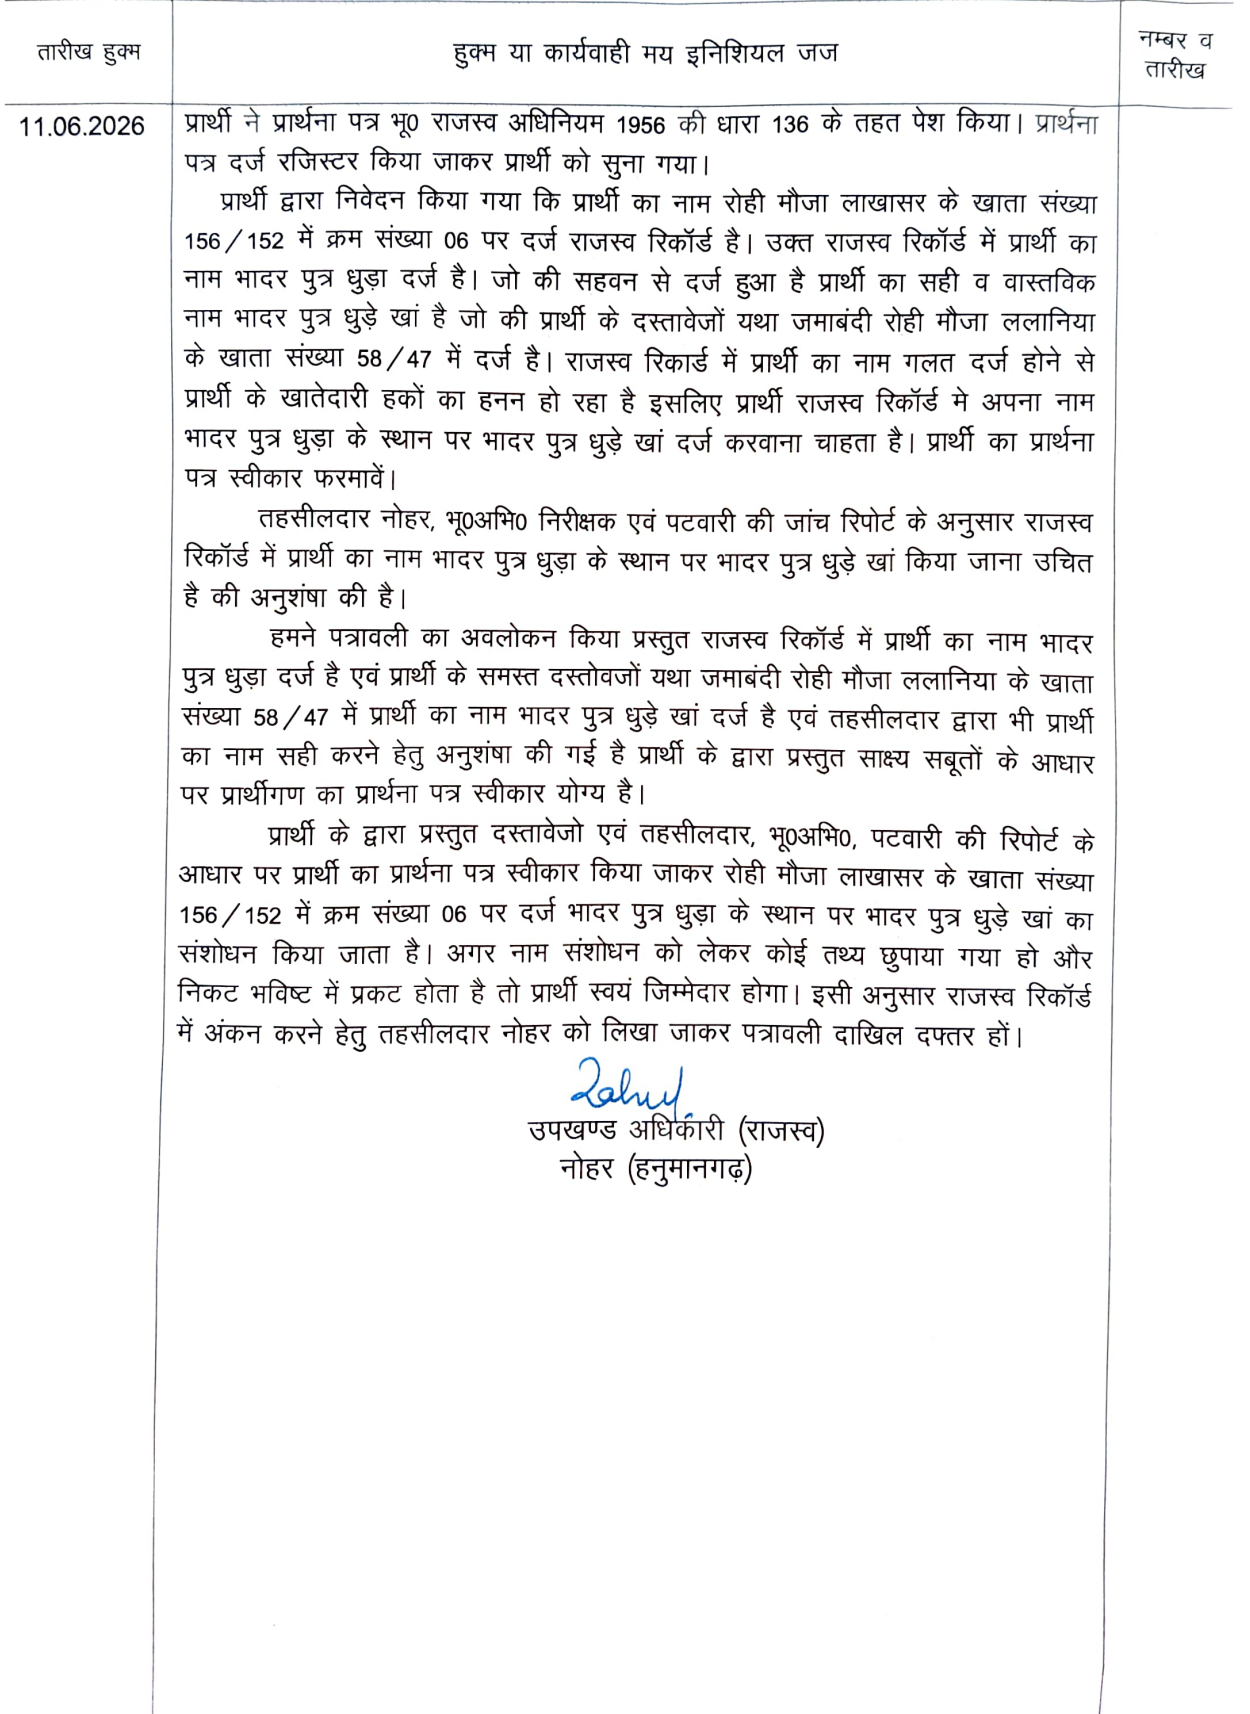 तारीख हुक्म
हुक्म या कार्यवाही मय इनिशियल जज
नम्बर व
तारीख
11.06.2026
प्रार्थी ने प्रार्थना पत्र भू0 राजस्व अधिनियम 1956 की धारा 136 के तहत पेश किया। प्रार्थना
पत्र दर्ज रजिस्टर किया जाकर प्रार्थी को सुना गया।
प्रार्थी द्वारा निवेदन किया गया कि प्रार्थी का नाम रोही मौजा लाखासर के खाता संख्या
156/152 में क्रम संख्या 06 पर दर्ज राजस्व रिकॉर्ड है। उक्त राजस्व रिकॉर्ड में प्रार्थी का
नाम भादर पुत्र धुड़ा दर्ज है। जो की सहवन से दर्ज हुआ है प्रार्थी का सही व वास्तविक
नाम भादर पुत्र धुड़े खां है जो की प्रार्थी के दस्तावेजों यथा जमाबंदी रोही मौजा ललानिया
के खाता संख्या 58/47 में दर्ज है। राजस्व रिकार्ड में प्रार्थी का नाम गलत दर्ज होने से
प्रार्थी के खातेदारी हकों का हनन हो रहा है इसलिए प्रार्थी राजस्व रिकॉर्ड मे अपना नाम
भादर पुत्र धुड़ा के स्थान पर भादर पुत्र धुड़े खां दर्ज करवाना चाहता है। प्रार्थी का प्रार्थना
पत्र स्वीकार फरमावें।
तहसीलदार नोहर, भू0अभि0 निरीक्षक एवं पटवारी की जांच रिपोर्ट के अनुसार राजस्व
रिकॉर्ड में प्रार्थी का नाम भादर पुत्र धुड़ा के स्थान पर भादर पुत्र धुड़े खां किया जाना उचित
है की अनुशंषा की है।
हमने पत्रावली का अवलोकन किया प्रस्तुत राजस्व रिकॉर्ड में प्रार्थी का नाम भादर
पुत्र धुड़ा दर्ज है एवं प्रार्थी के समस्त दस्तोवजों यथा जमाबंदी रोही मौजा ललानिया के खाता
संख्या 58/47 में प्रार्थी का नाम भादर पुत्र धुड़े खां दर्ज है एवं तहसीलदार द्वारा भी प्रार्थी
का नाम सही करने हेतु अनुशंषा की गई है प्रार्थी के द्वारा प्रस्तुत साक्ष्य सबूतों के आधार
पर प्रार्थीगण का प्रार्थना पत्र स्वीकार योग्य है।
प्रार्थी के द्वारा प्रस्तुत दस्तावेजो एवं तहसीलदार, भू0अभि0, पटवारी की रिपोर्ट के
आधार पर प्रार्थी का प्रार्थना पत्र स्वीकार किया जाकर रोही मौजा लाखासर के खाता संख्या
156/152 में क्रम संख्या 06 पर दर्ज भादर पुत्र धुड़ा के स्थान पर भादर पुत्र धुड़े खां का
संशोधन किया जाता है। अगर नाम संशोधन को लेकर कोई तथ्य छुपाया गया हो और
निकट भविष्ट में प्रकट होता है तो प्रार्थी स्वयं जिम्मेदार होगा। इसी अनुसार राजस्व रिकॉर्ड
में अंकन करने हेतु तहसीलदार नोहर को लिखा जाकर पत्रावली दाखिल दफ्तर हों।
उपखण्ड अधिकारी (राजस्व)
नोहर (हनुमानगढ़)